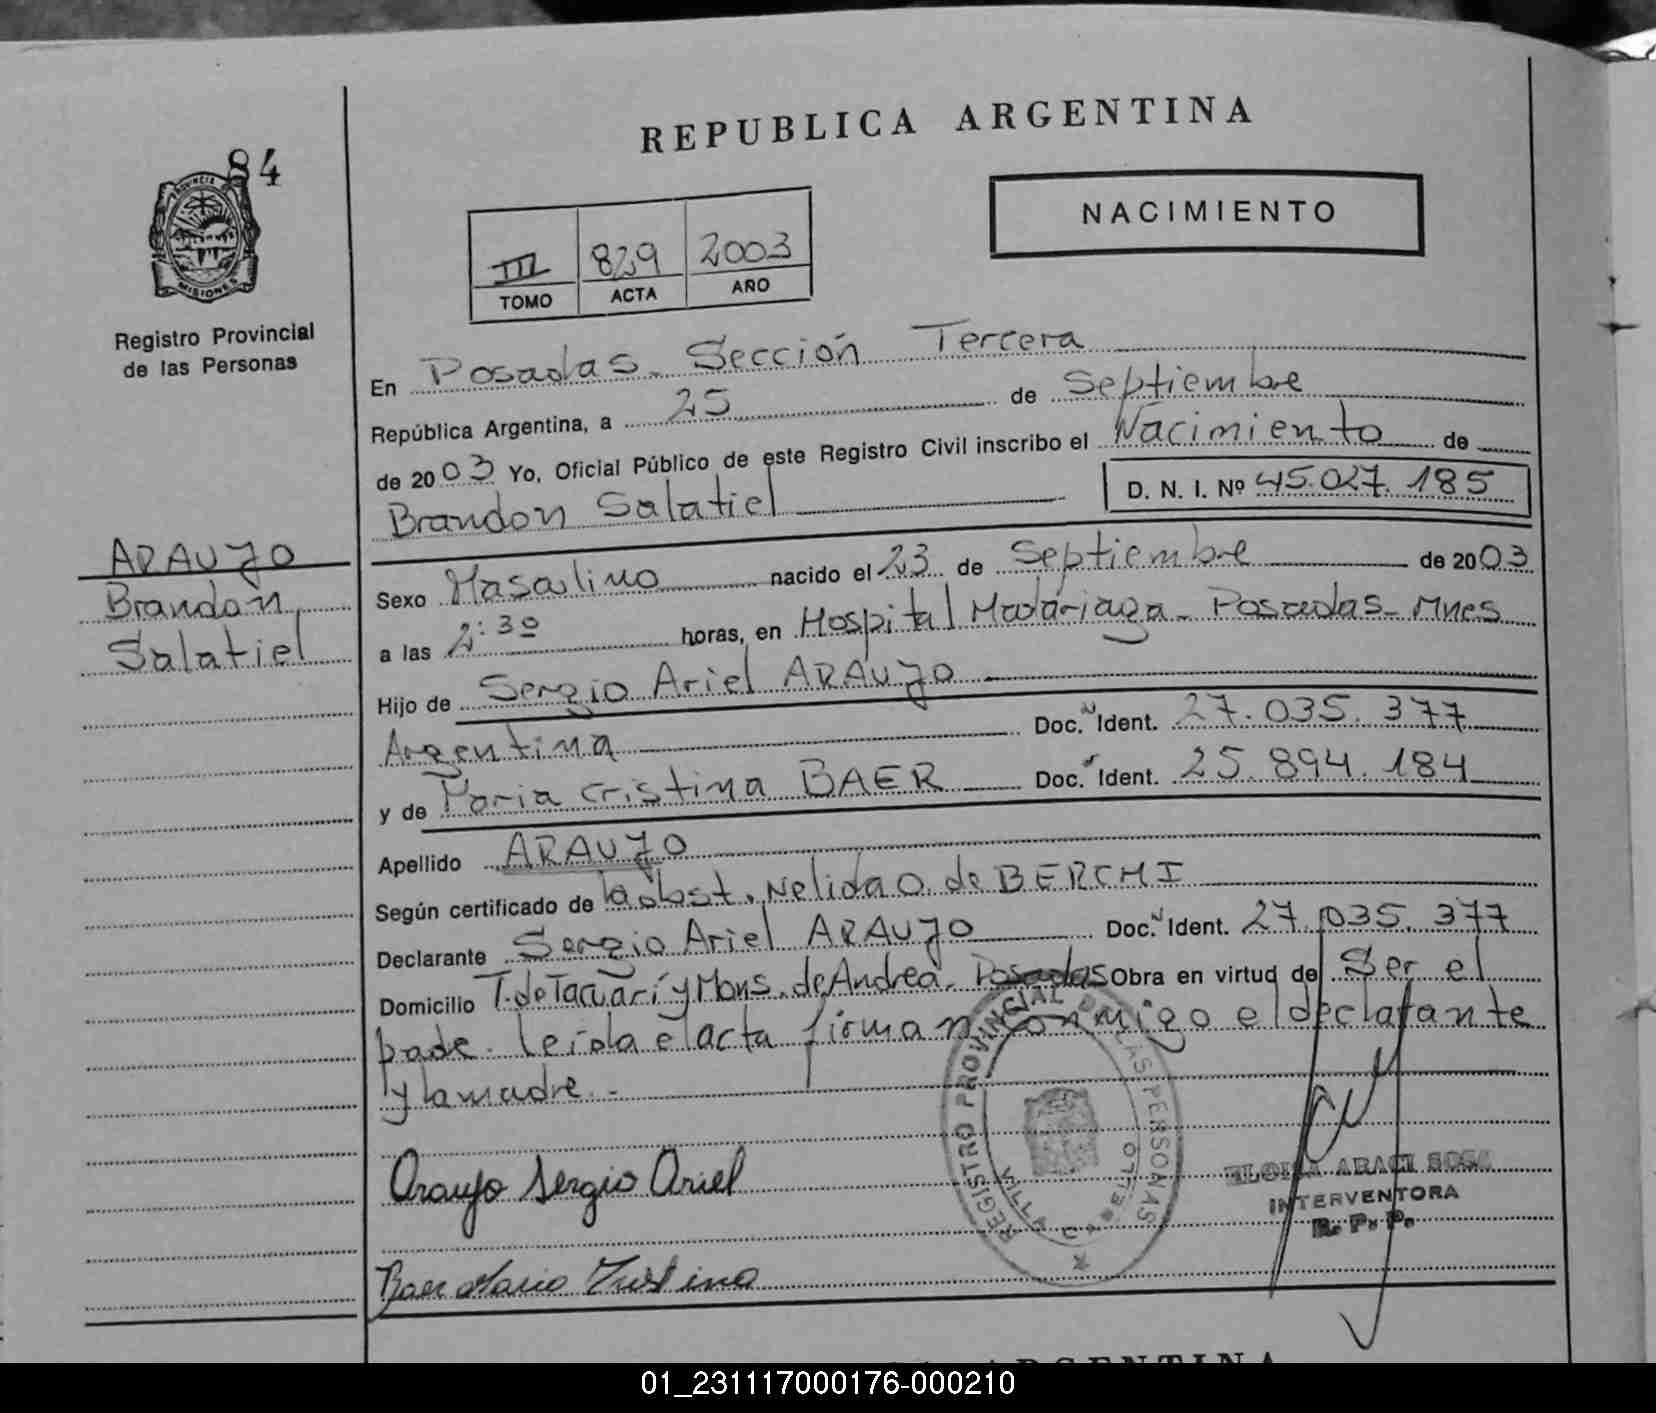 84
PROVINCIA
MISIONES
Registro Provincial
de las Personas
REPUBLICA ARGENTINA
NACIMIENTO
III 829 2003
TOMO ACTA AÑO
En Posadas - Sección Tercera
República Argentina, a 25 de Septiembre
de 2003 Yo, Oficial Público de este Registro Civil inscribo el Nacimiento de
Brandon Salatiel D. N. I. Nº 45.027.185
ARAUJO
Brandon
Salatiel
Sexo Masculino nacido el 23 de Septiembre de 2003
a las 2:30 horas, en Hospital Madariaga - Posadas - Mnes
Hijo de Sergio Ariel ARAUJO
Argentina Doc. N Ident. 27.035.377
y de Maria Cristina BAER Doc. Ident. 25.894.184
Apellido ARAUJO
Según certificado de la obst. Nelida O. de BERCHI
Declarante Sergio Ariel ARAUJO Doc. N Ident. 27.035.377
Domicilio T. de Tacuarí y Mons. de Andrea - Posadas Obra en virtud de Ser el
padre. leída el acta firman conmigo el declarante
y la madre.-
REGISTRO PROVINCIAL DE LAS PERSONAS
Araujo Sergio Ariel
ELOISA ARACI SOSA
INTERVENTORA
R. P. P.
Baer Maria Cristina
ARGENTINA
01_231117000176-000210